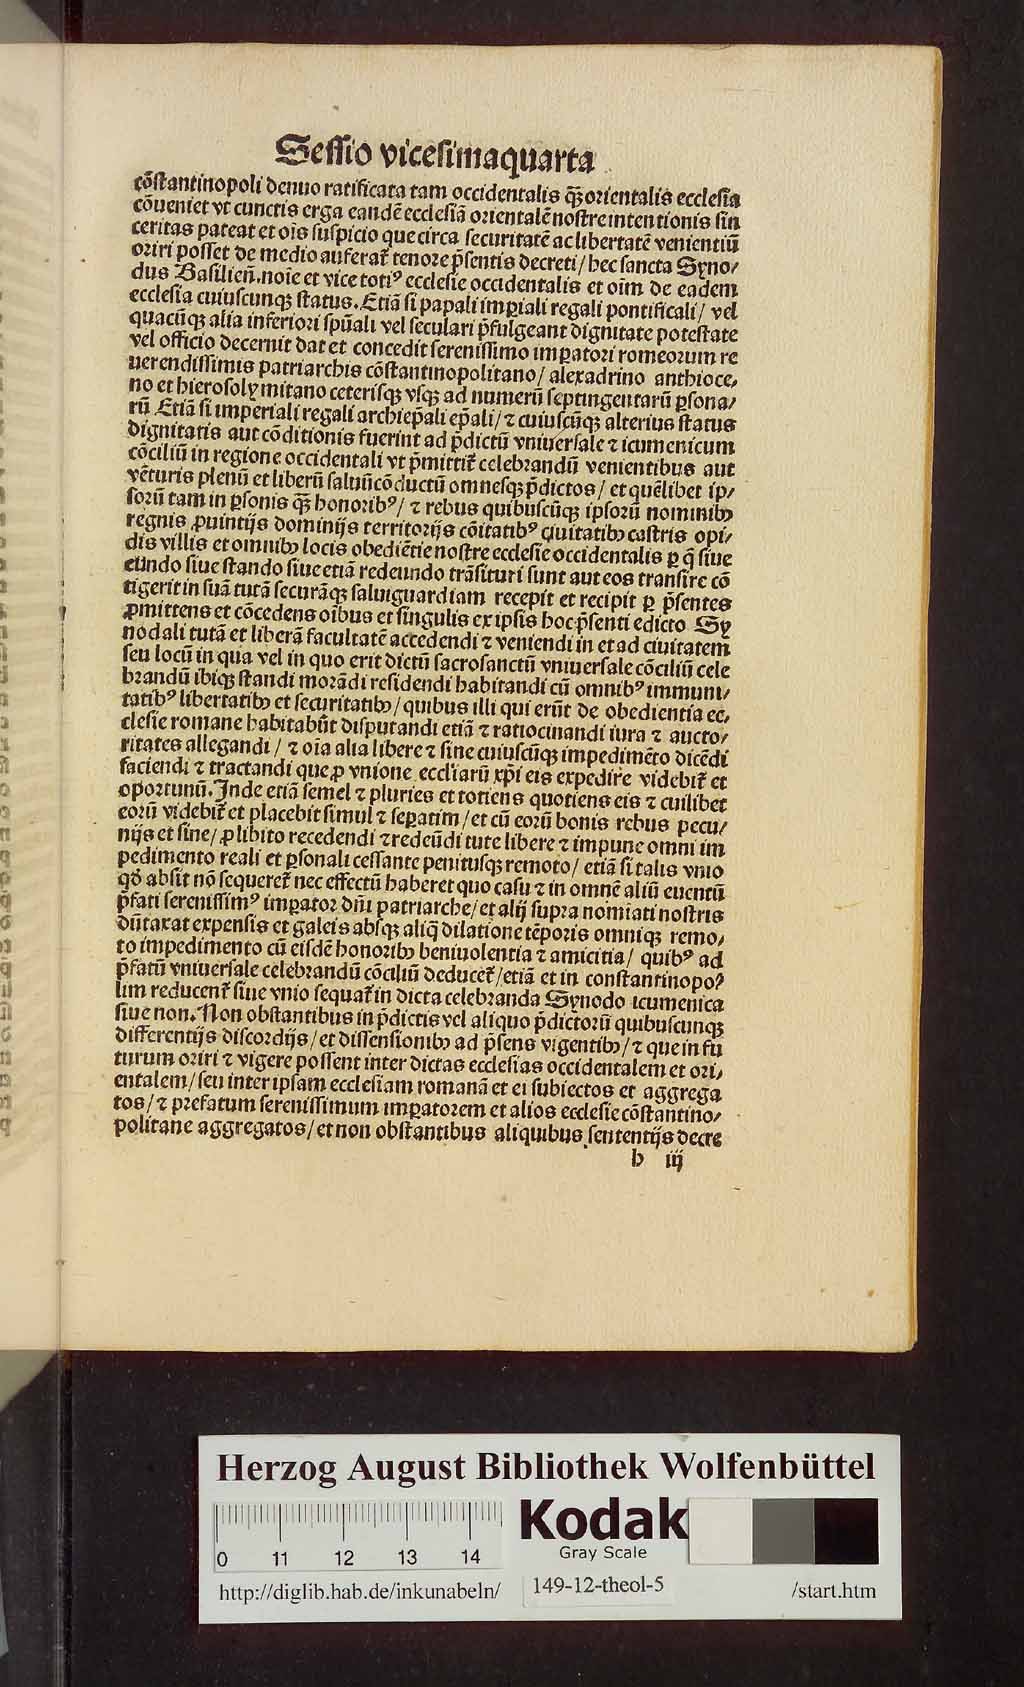 Sessio vicesimaquarta
cōstantinopoli denuo ratificata tam occidentalis q̄ȝ orientalis ecclesia
cōueniet vt cunctis erga eandē ecclesiā orientalē nostre intentionis sin
ceritas pateat et oīs suspicio que circa securitatē ac libertatē venientiū
oriri posset de medio auferat̄ tenore p̄sentis decreti/ hec sancta Syno/
dus Basilien̄. noīe et vice totiꝰ ecclesie occidentalis et oīm de eadem
ecclesia cuiuscunqȝ status. Etiā si papali imꝑiali regali pontificali/ vel
quacūqȝ alia inferiori spūali vel seculari p̄fulgeant dignitate potestate
vel officio decernit dat et concedit serenissimo imꝑatori romeorum re
uerendissimis patriarchis cōstantinopolitano/ alexādrino anthioce/
no et hierosolymitano ceterisqȝ vsqȝ ad numerū septingentarū ꝑsona/
rū Etiā si imperiali regali archiep̄ali ep̄ali/ ⁊ cuiuscūqȝ alterius status
dignitatis aut cōditionis fuerint ad p̄dictū vniuersale ⁊ icumenicum
cōciliū in regione occidentali vt p̄mittit̄ celebrandū venientibus aut
vēturis plenū et liberū saluūcōductū omnesqȝ p̄dictos/ et quēlibet ip/
sorū tam in ꝑsonis q̄ȝ honoribꝰ/ ⁊ rebus quibuscūqȝ ipsorū nominibȝ
regnis ꝓuintijs dominijs territorijs cōitatibꝰ ciuitatibȝ castris opi/
dis villis et omnibȝ locis obediētie nostre ecclesie occidentalis ꝑ q̄ siue
eūndo siue stando siue etiā redeundo trāsituri sunt aut eos transire cō
tigerit in suā tutā securāqȝ saluiguardiam recepit et recipit ꝑ p̄sentes
ꝓmittens et cōcedens oībus et singulis ex ipsis hoc p̄senti edicto Sy
nodali tutā et liberā facultatē accedendi ⁊ veniendi in et ad ciuitatem
seu locū in qua vel in quo erit dictū sacrosanctū vniuersale cōciliū cele
brandū ibiqȝ standi morādi residendi habitandi cū omnibꝰ immuni/
tatibꝰ libertatibȝ et securitatibȝ/ quibus illi qui erūt de obedientia ec/
clesie romane habitabūt disputandi etiā ⁊ ratiocinandi iura ⁊ aucto/
ritates allegandi/ ⁊ oīa alia libere ⁊ sine cuiuscūqȝ impedimēto dicēdi
faciendi ⁊ tractandi que ꝓ vnione eccliarū xp̄i eis expedire videbit̄ et
oportunū. Inde etiā semel ⁊ pluries et totiens quotiens eis ⁊ cuilibet
eorū videbit̄ et placebit simul ⁊ seꝑatim/ et cū eorū bonis rebus pecu/
nijs et sine/ ꝓ libito recedendi ⁊ redeūdi tute libere ⁊ impune omni im
pedimento reali et ꝑsonali cessante penitusqȝ remoto/ etiā si talis vnio
qđ absit nō sequeret̄ nec effectū haberet quo casu ⁊ in omnē aliū euentū
p̄fati serenissimꝰ imꝑator dn̄i patriarche/ et alij supra nomīati nostris
dūtaxat expensis et galeis absqȝ aliq̄ dilatione tēporis omniqȝ remo/
to impedimento cū eisdē honoribȝ beniuolentia ⁊ amicitia/ quibꝰ ad
p̄fatū vniuersale celebrandū cōciliū deducet̄/ etiā et in constantinopo/
lim reducent̄ siue vnio sequat̄ in dicta celebranda Synodo icumenica
siue non. Non obstantibus in p̄dictis vel aliquo p̄dictorū quibuscunqȝ
differentijs discordijs/ et dissensionibȝ ad p̄sens vigentibȝ/ ⁊ que in fu
turum oriri ⁊ vigere possent inter dictas ecclesias occidentalem et ori/
entalem/ seu inter ipsam ecclesiam romanā et ei subiectos et aggrega
tos/ ⁊ prefatum serenissimum imꝑatorem et alios ecclesie cōstantino/
politane aggregatos/ et non obstantibus aliquibus sententijs decre
b iij
Herzog August Bibliothek Wolfenbüttel
Kodak
Gray Scale
0 11 12 13 14
http://diglib.hab.de/inkunabeln/ 149-12-theol-5 /start.htm